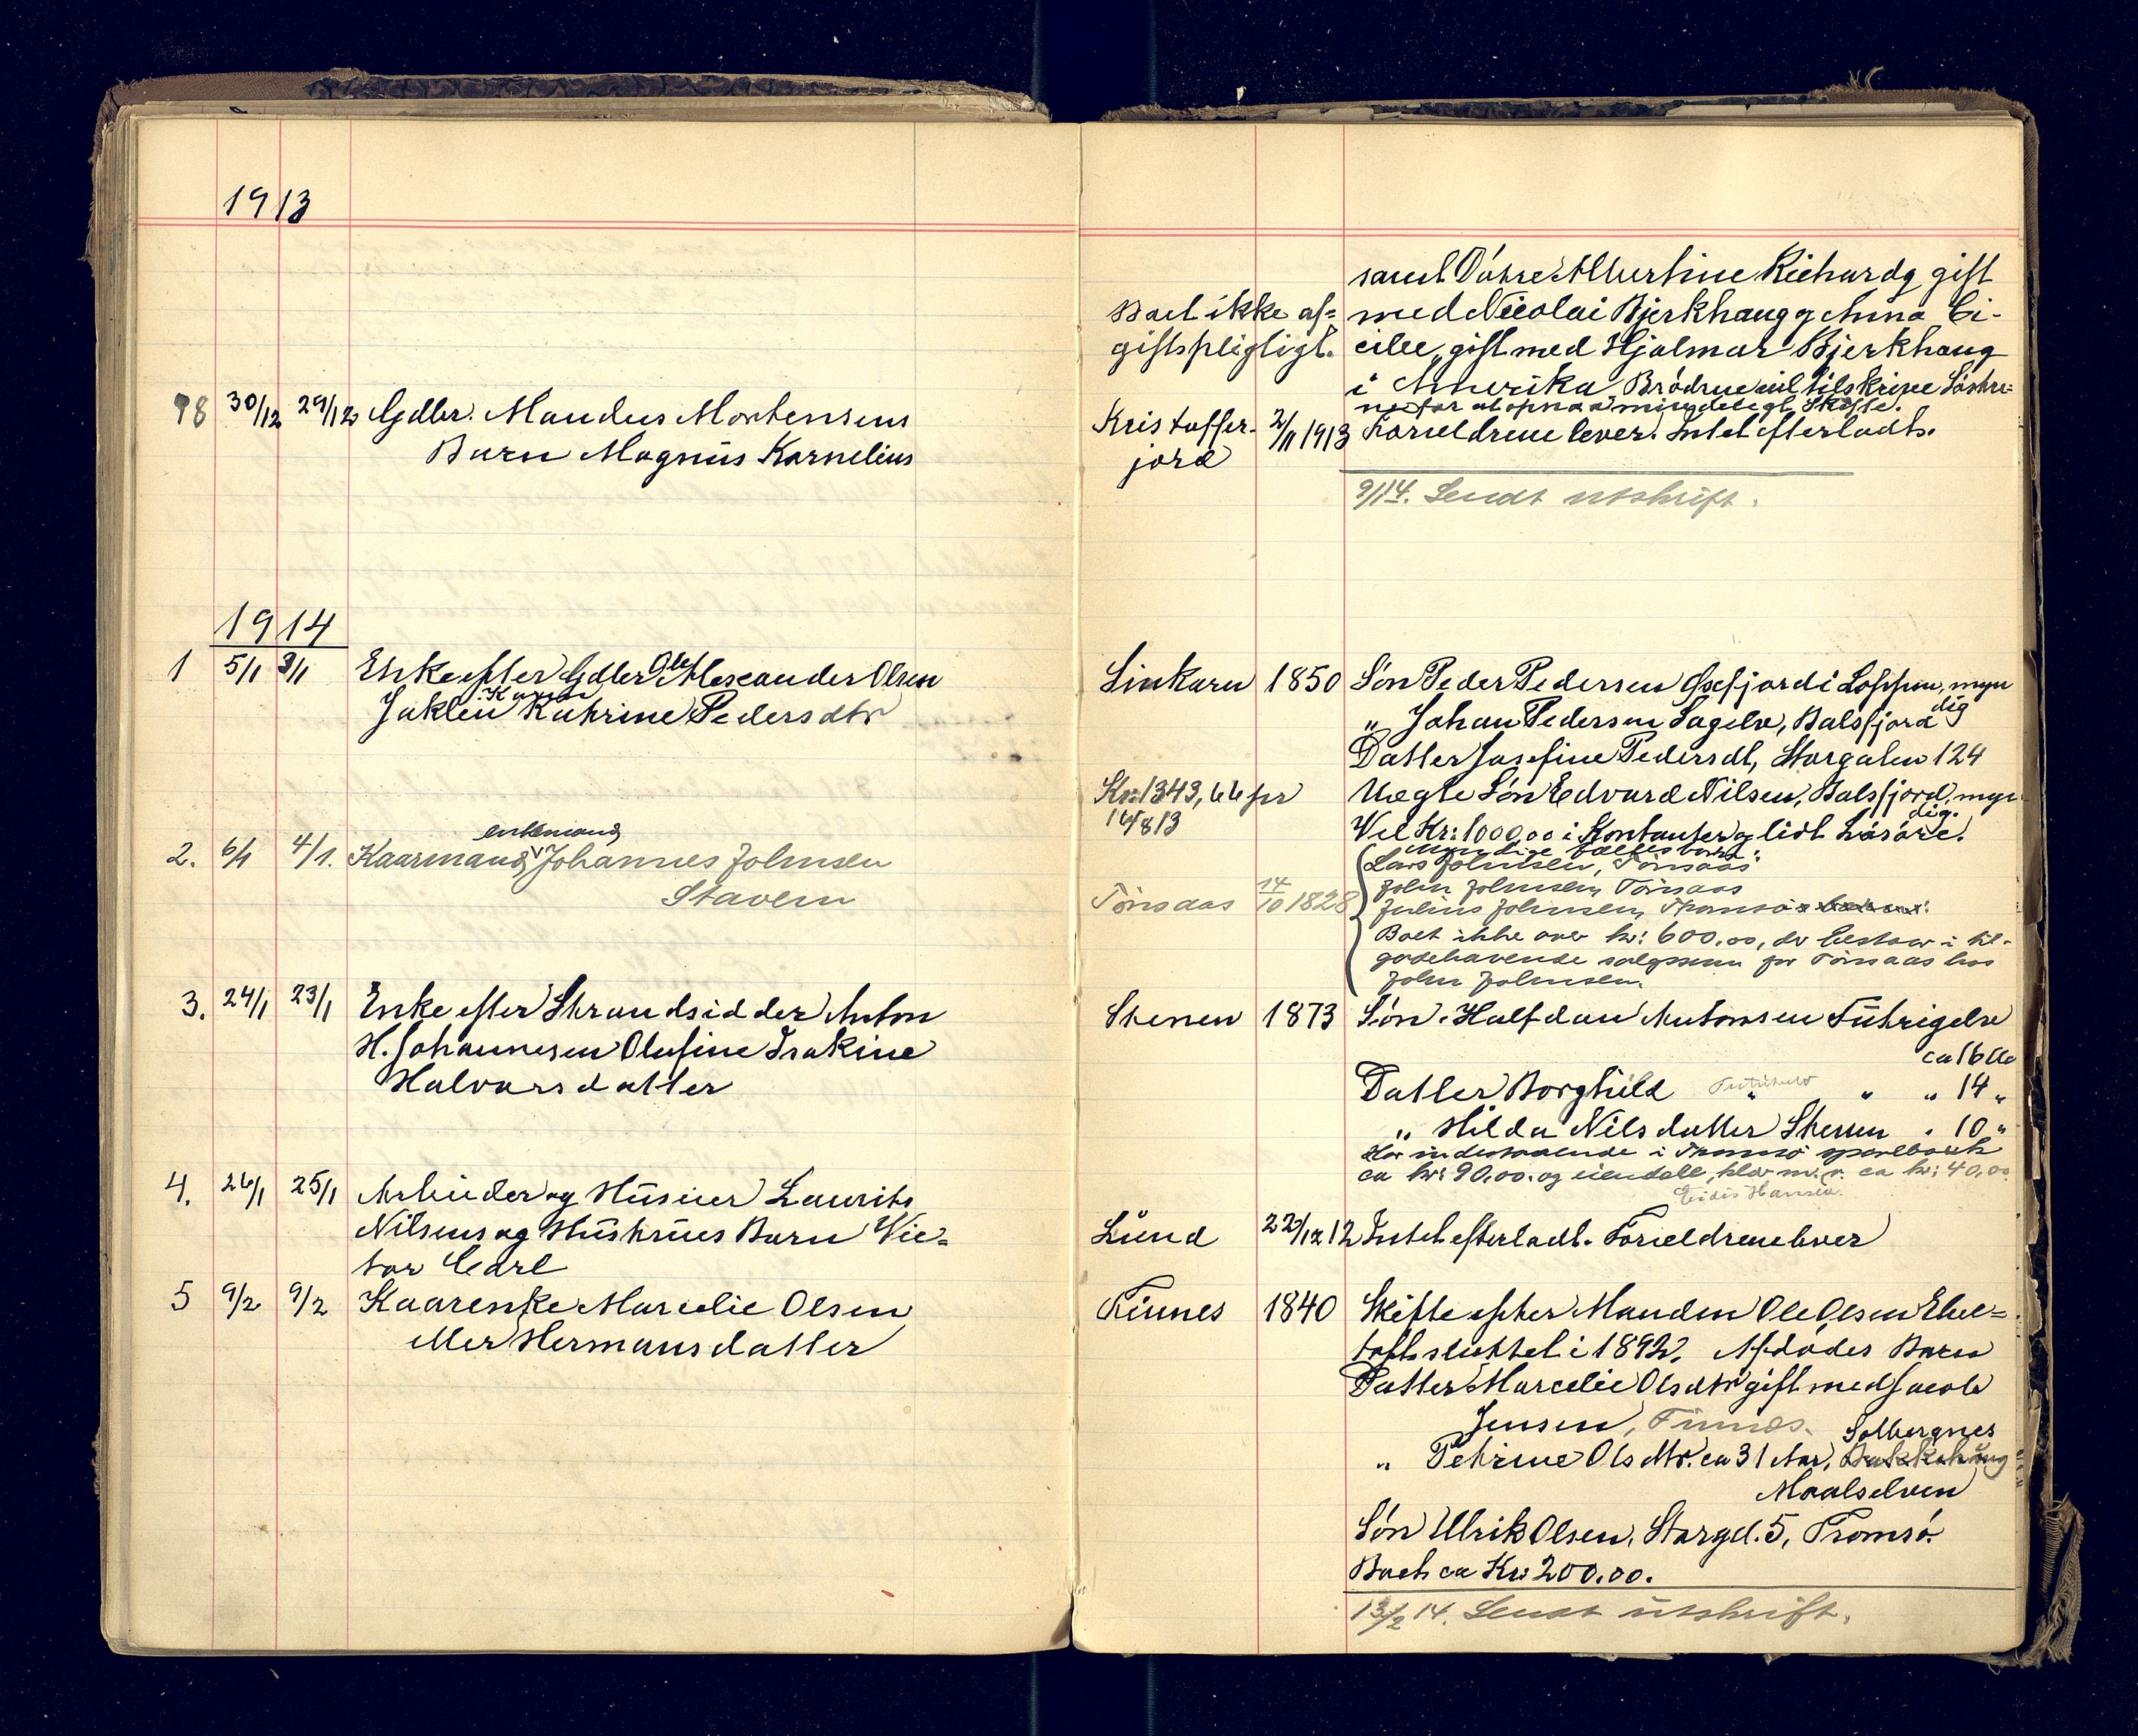 1913
samt Døtre Albertine Richards gift
Boet ikke af= med Nicolai Bjerkhaug og Anna Ce-
giftspligtigt. cilie, gift med Hjalmar Bjerkhaug
i Amerika. Brødrene vil tilskrive Søstre-
ne for at opnaa mindeligt Skifte.
98 30/12 29/12 Gdbr. Mandus Mortensens Kristoffer- 2/11 1913 Forældrene lever. Intet efterladt.
Barn Magnus Kornelius jord
9/1 14. Sendt utskrift.
1914
1 5/1 3/1 Enke efter Gdbr Ole Alexander Olsen Sinkarn 1850 Søn Peder Pedersen Øxfjord i Loppen, myn
Karen
Jaklen Kathrine Pedersdtr " Johan Pedersen Sagelv, Balsfjord dig
Datter Josefine Pedersdt, Storgaten 124
Kr. 1343,66 pr Uegte Søn Edvard Nilsen, Balsfjord, myn
16/8 13 dig.
Vel Kr: 1000,00 i Kontanter og lidt Løsøre.
enkemand Myndige fælles barn:
2. 6/1 4/1. Kaarmand Johannes Johnsen Lars Johnsen, Tønsaas
Stavern Tønsaas 14/10 1828 John Johnsen, Tønsaas
Julius Johnsen, Tromsø
Boet ikke over kr: 600,00, der bestaar i til-
godehavende salgssum for Tønsaas hos
John Johnsen.
3. 24/1 23/1 Enke efter Strandsidder Anton Stenen 1873 Søn Halfdan Antonsen Tührigelv
ca 16 Aar
H. Johannesen Olufine Trakine Datter Borghild " " " 14 "
Halvorsdatter " Hilda Nilsdatter Stenen " 10 "
Har indestaaende i Tromsø sparebank
ca kr: 90,00. og eiendele, klær m. v. ca kr: 40,00.
Eidis Hansen.
4. 26/1 25/1 Arbeider og Huseier Laurits Lund 22/12 12 Intet efterladt. Forældrene lever
Nilsens og Hustrues Barn Vic=
tor Carl
5 9/2 9/2 Kaarenke Marcelie Olsen Finnes 1840 Skifte efter Manden Ole Olsen Ebel=
eller Hermansdatter toft sluttet i 1892. Afdødes Barn
Datter Marcelie Olsdtr gift med Jacob
Jensen, Finnes.
Solbergnes
" Petrine Olsdtr. ca 31 Aar, Bakkehaug
Maalselven
Søn Ulrik Olsen, Storgd. 5, Tromsø.
Boet ca Kr: 200,00.
13/2 14. Sendt utskrift.